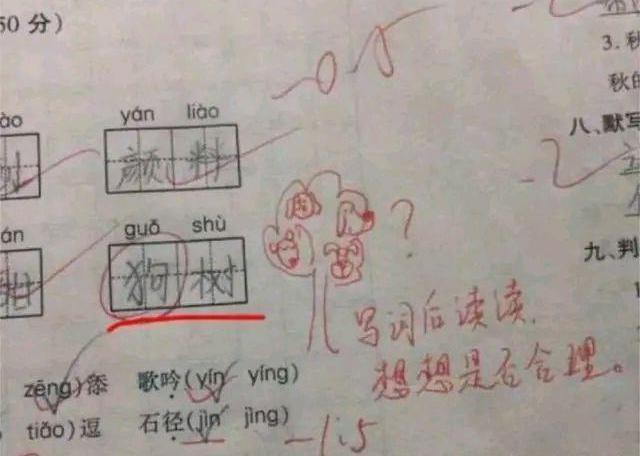 50分)
-0.5
3.秋
秋的
ào
yán liào
颜料
八、默写
-2
án
guǒ shù
狗树
?
九、判
写词后读读,
想想是否合理。
zēng)添 歌吟(yín yíng)
tiǎo)逗 石径(jìn jìng)
-1.5